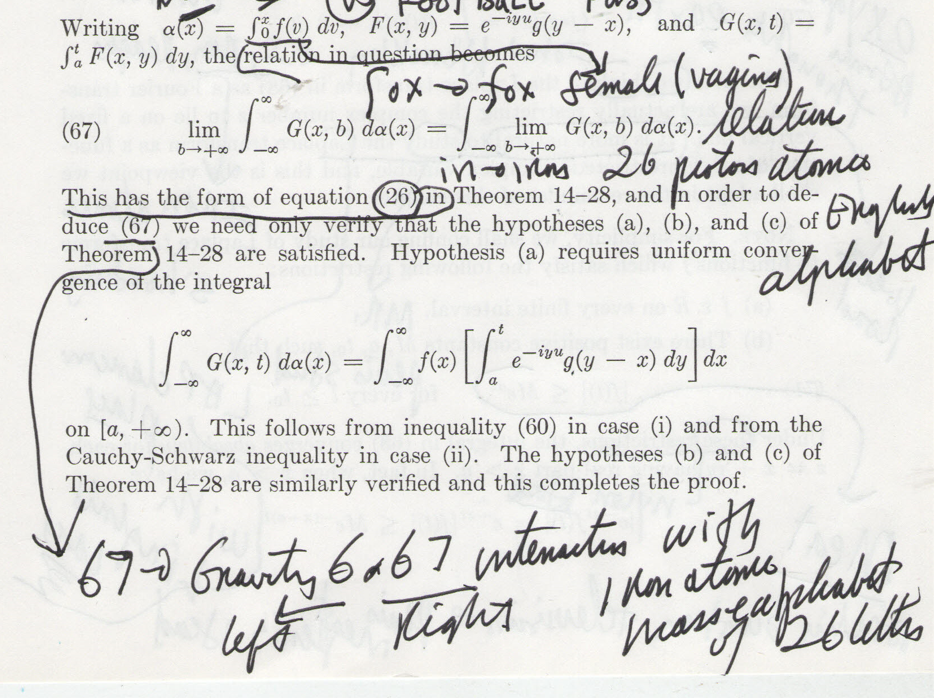 FOOTBALL
Writing α(x) = ∫₀ˣ f(v) dv, F(x, y) = e^{-iyu}g(y − x), and G(x, t) =
∫ₐᵗ F(x, y) dy, the relation in question becomes
fox → fox female (vagina)
(67) lim_{b→+∞} ∫_{-∞}^{∞} G(x, b) dα(x) = ∫_{-∞}^{∞} lim_{b→+∞} G(x, b) dα(x). relation
26 protons atomic
This has the form of equation (26) in Theorem 14–28, and in order to de-
duce (67) we need only verify that the hypotheses (a), (b), and (c) of English
Theorem 14–28 are satisfied. Hypothesis (a) requires uniform conver- alphabet
gence of the integral
∫_{-∞}^{∞} G(x, t) dα(x) = ∫_{-∞}^{∞} f(x) [∫ₐᵗ e^{-iyu}g(y − x) dy] dx
on [a, +∞). This follows from inequality (60) in case (i) and from the
Cauchy-Schwarz inequality in case (ii). The hypotheses (b) and (c) of
Theorem 14–28 are similarly verified and this completes the proof.
67 → Gravity 6 67 interacts with
left Right
Iron atomic
mass alphabet
26 letters